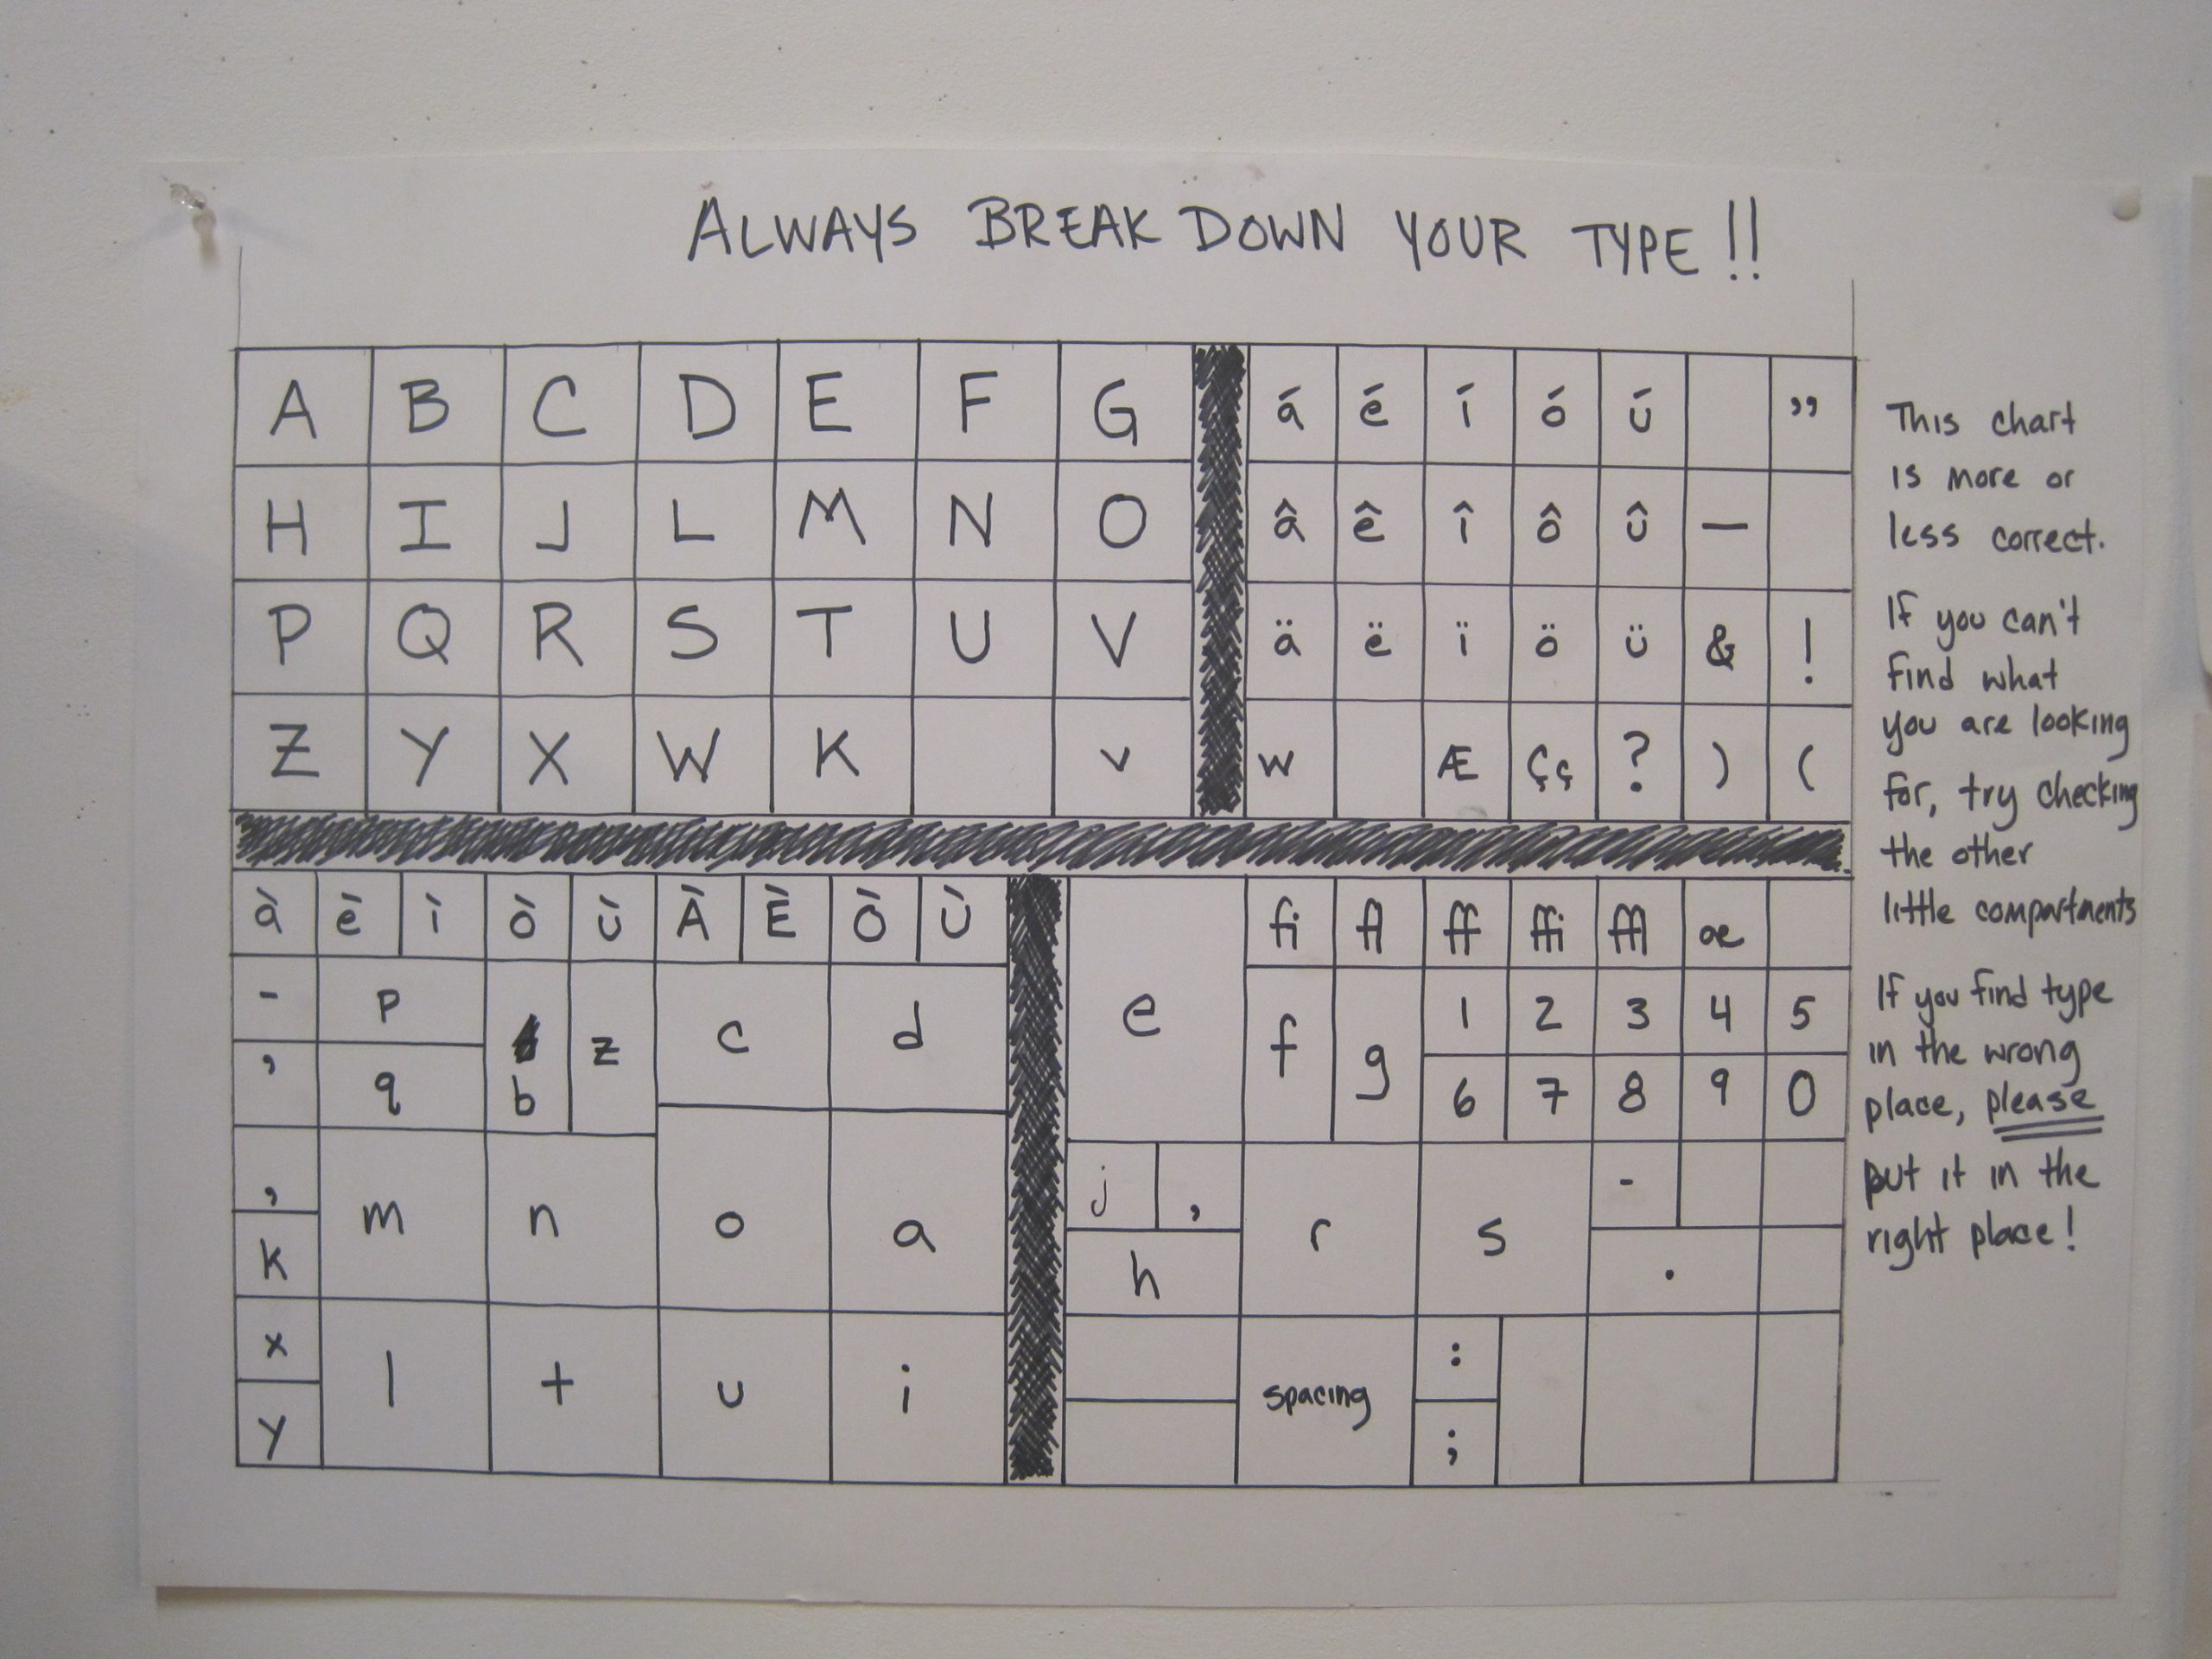 ALWAYS BREAK DOWN YOUR TYPE!!
A B C D E F G á é í ó ú ”
H I J L M N O â ê î ô û —
P Q R S T U V ä ë ï ö ü & !
Z Y X W K v w Æ Çç ? ) (
à è ì ò ù À È Ò Ù e fi fl ff ffi ffl œ
- p b z c d f g 1 2 3 4 5
’ q 6 7 8 9 0
, m n o a j , r s -
k h .
x l t u i spacing :
y ;
This chart
is more or
less correct.
If you can't
find what
you are looking
for, try checking
the other
little compartments
If you find type
in the wrong
place, please
put it in the
right place!